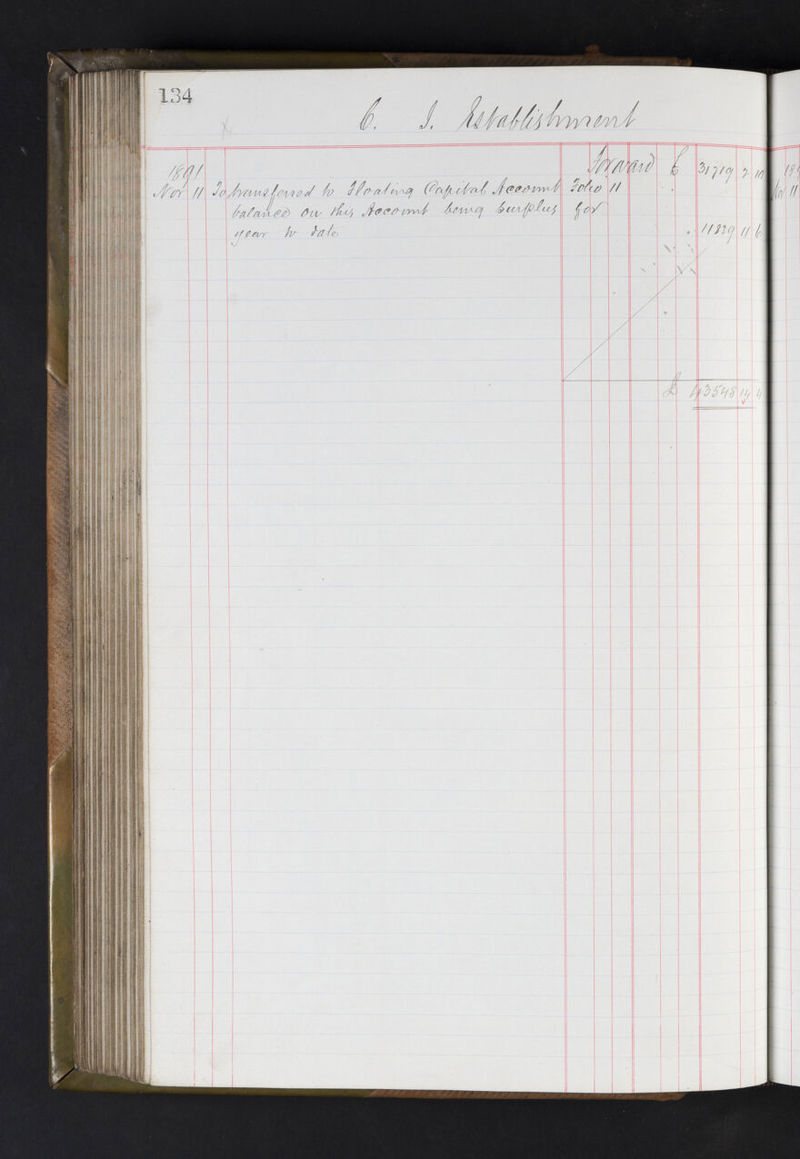 134
C. I. Establishment
Forward £ 31719 2 10
1891
Nov 11 To transferred to Floating Capital Account Folio 11
balance on this Account being Surplus for
year to date 11829 11 6
£ 43548 14 4
189
Nov 11